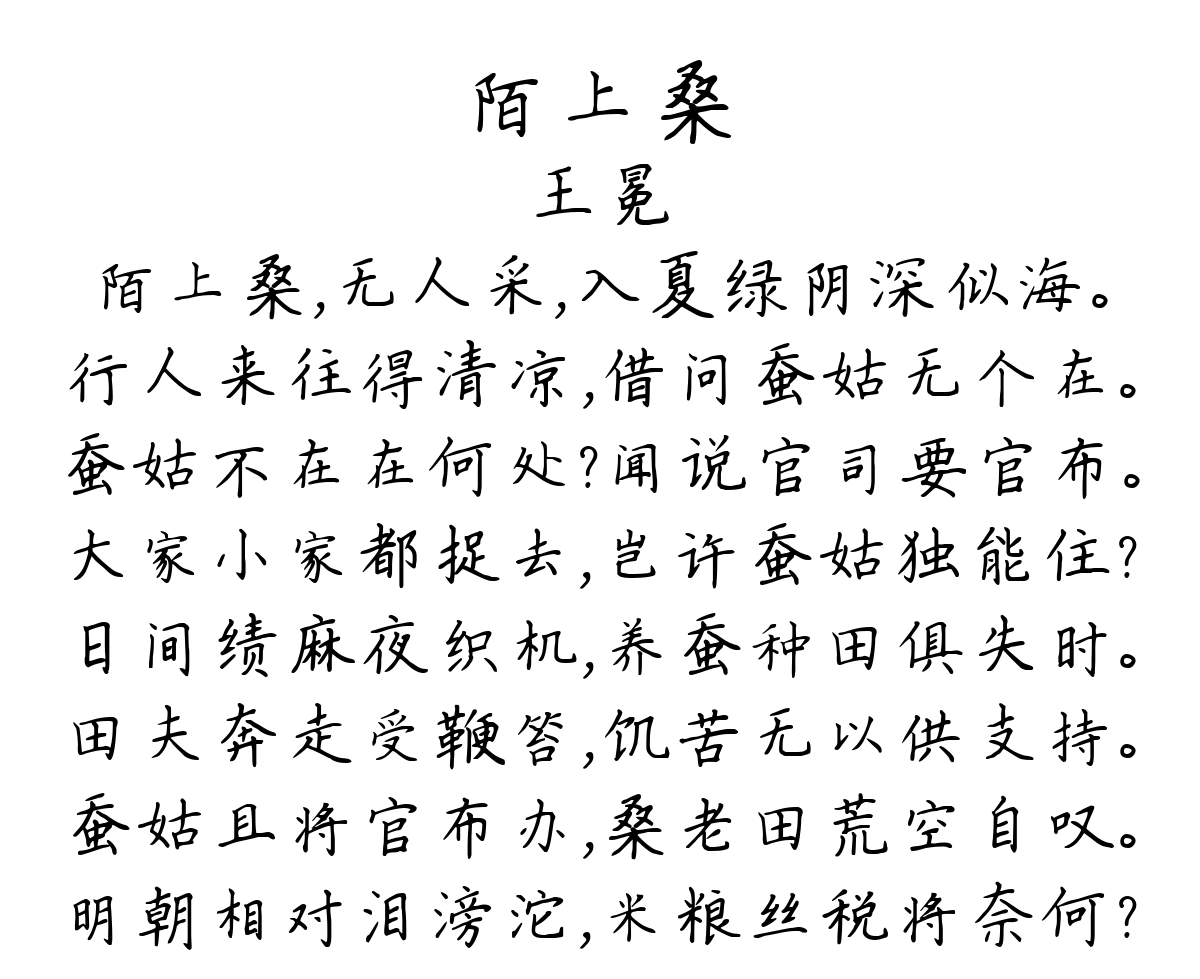 陌上桑
王冕
陌上桑,无人采,入夏绿阴深似海。
行人来往得清凉,借问蚕姑无个在。
蚕姑不在在何处?闻说官司要官布。
大家小家都捉去,岂许蚕姑独能住?
日间绩麻夜织机,养蚕种田俱失时。
田夫奔走受鞭笞,饥苦无以供支持。
蚕姑且将官布办,桑老田荒空自叹。
明朝相对泪滂沱,米粮丝税将奈何?